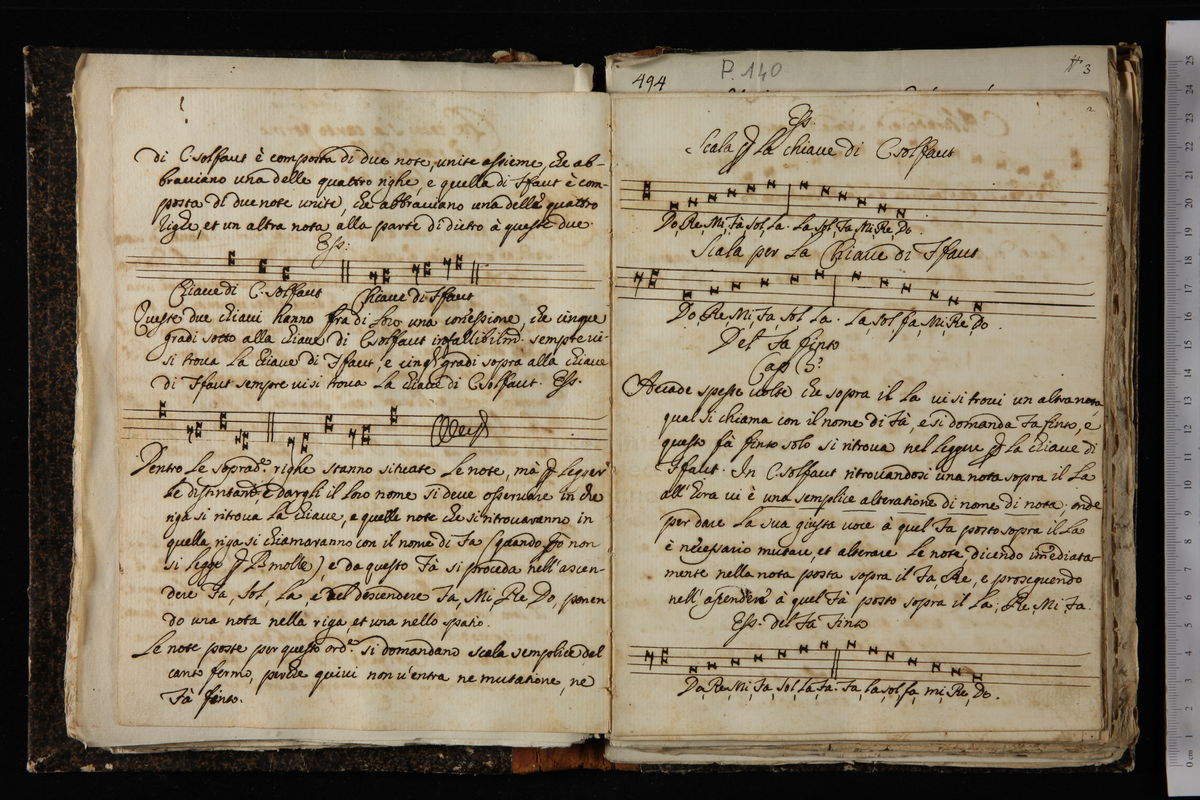 di C.solfaut è composta di due note, unite assieme, che ab-
bracciano una delle quattro righe, e quella di Ffaut è com-
posta di due note unite, che abbracciano una delle quattro
righe, et un altra nota alla parte di dietro à queste due.
Ess:
Chiave di C.solfaut Chiave di Ffaut
Queste due chiavi hanno frà di loro una conessione, che cinque
gradi sotto alla chiave di Csolfaut sempre vi
si trova la chiave di Ffaut, e cinq gradi sopra alla chiave
di Ffaut sempre vi si trova la chiave di Csolfaut. Ess.
Dentro le soprade righe stanno situate le note, mà p legger
le e dargli il loro nome si deve osservare in che
riga si ritrova la chiave, e quelle note che si ritrovaranno in
quella riga si chiamaranno con il nome di Fa (quando non
si legge p B molle), e da questo Fà si proceda nell'ascen-
dere Fa, Sol, La e nel descendere Fa, Mi, Re, Do, ponen
do una nota nella riga, et una nello spatio.
Le note poste per questo orde si domandano scala semplice del
canto fermo, perche quivi non v'entra ne mutatione, ne
Fà finto.
494
P. 140
3
2
Ess.
Scala p la chiave di Csolfaut
Do, Re, Mi, Fà, Sol, La. La, Sol, Fa, Mi, Re, Do.
Scala per la Chiave di Ffaut
Do, Re, Mi, Fà, Sol, La. La, Sol, fa, Mi, Re, Do.
Del Fa finto
Cap 3º
Accade spesse volte che sopra il La vi si trovi un altra nota
qual si chiama con il nome di Fà, e si domanda Fa finto, e
questo fà finto solo si ritrova nel leggere p la chiave di
Ffaut. In C.solfaut ritrovandosi una nota sopra il La
all'hora vi è una semplice alteratione di nome di nota, onde
per dare la sua giusta voce à quel Fa posto sopra il La
è necessario mutare, et alterare le note dicendo imediata-
mente nella nota posta sopra il Fà, Re, e proseguendo
nell'ascendere à quel Fà posto sopra il La, Re Mi Fa.
Ess. del Fà finto
Do, Re, Mi, Fa, sol, la, Fa. Fa, la, sol, fa, mi, Re, Do.